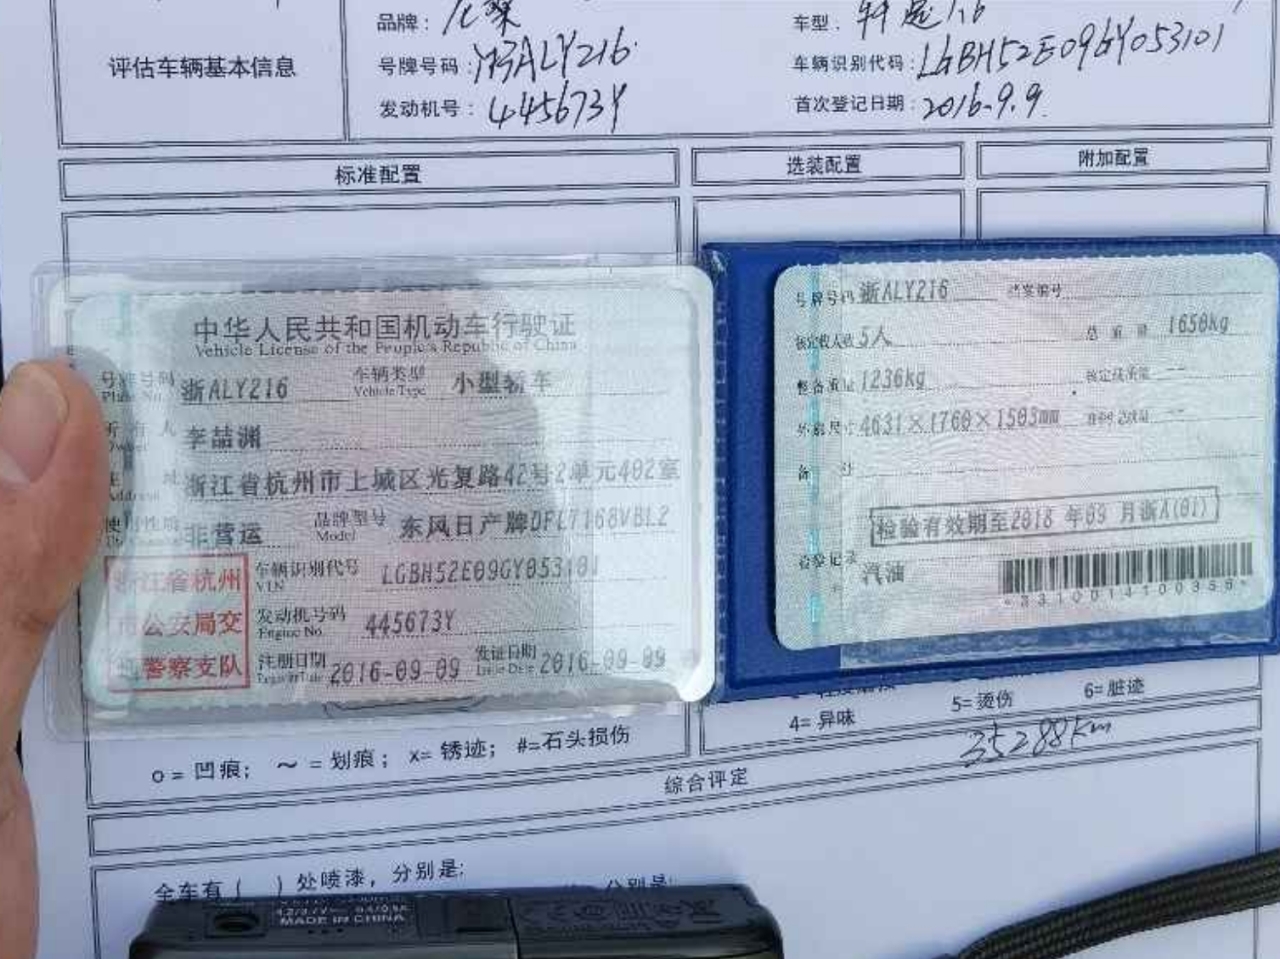 评估车辆基本信息
品牌：
车型：轩逸1.6
号牌号码：浙ALY216
车辆识别代码：LGBH52E09GY053101
发动机号：445673Y
首次登记日期：2016.9.9
标准配置
选装配置
附加配置
中华人民共和国机动车行驶证
Vehicle License of the People's Republic of China
号牌号码 浙ALY216 车辆类型 小型轿车
Plate No. Vehicle Type
所有人 李喆渊
Owner
住址 浙江省杭州市上城区光复路42号2单元402室
Address
使用性质 非营运 品牌型号 东风日产牌DFL7168VBL2
Model
浙江省杭州
市公安局交
通警察支队
车辆识别代号 LGBH52E09GY053101
VIN
发动机号码 445673Y
Engine No.
注册日期 2016-09-09 发证日期 2016-09-09
Register Date Issue Date
号牌号码 浙ALY216 档案编号
核定载人数 5人 总质量 1650kg
整备质量 1236kg 核定载质量 --
外廓尺寸 4631×1760×1503mm 准牵引总质量 --
备注
检验有效期至2018年09月浙A(01)
检验记录
汽油
*3310014100356*
4=异味
5=烫伤
6=脏迹
o=凹痕；～=划痕；x=锈迹；#=石头损伤
35288km
综合评定
全车有（ ）处喷漆，分别是:
分别是:
MADE IN CHINA